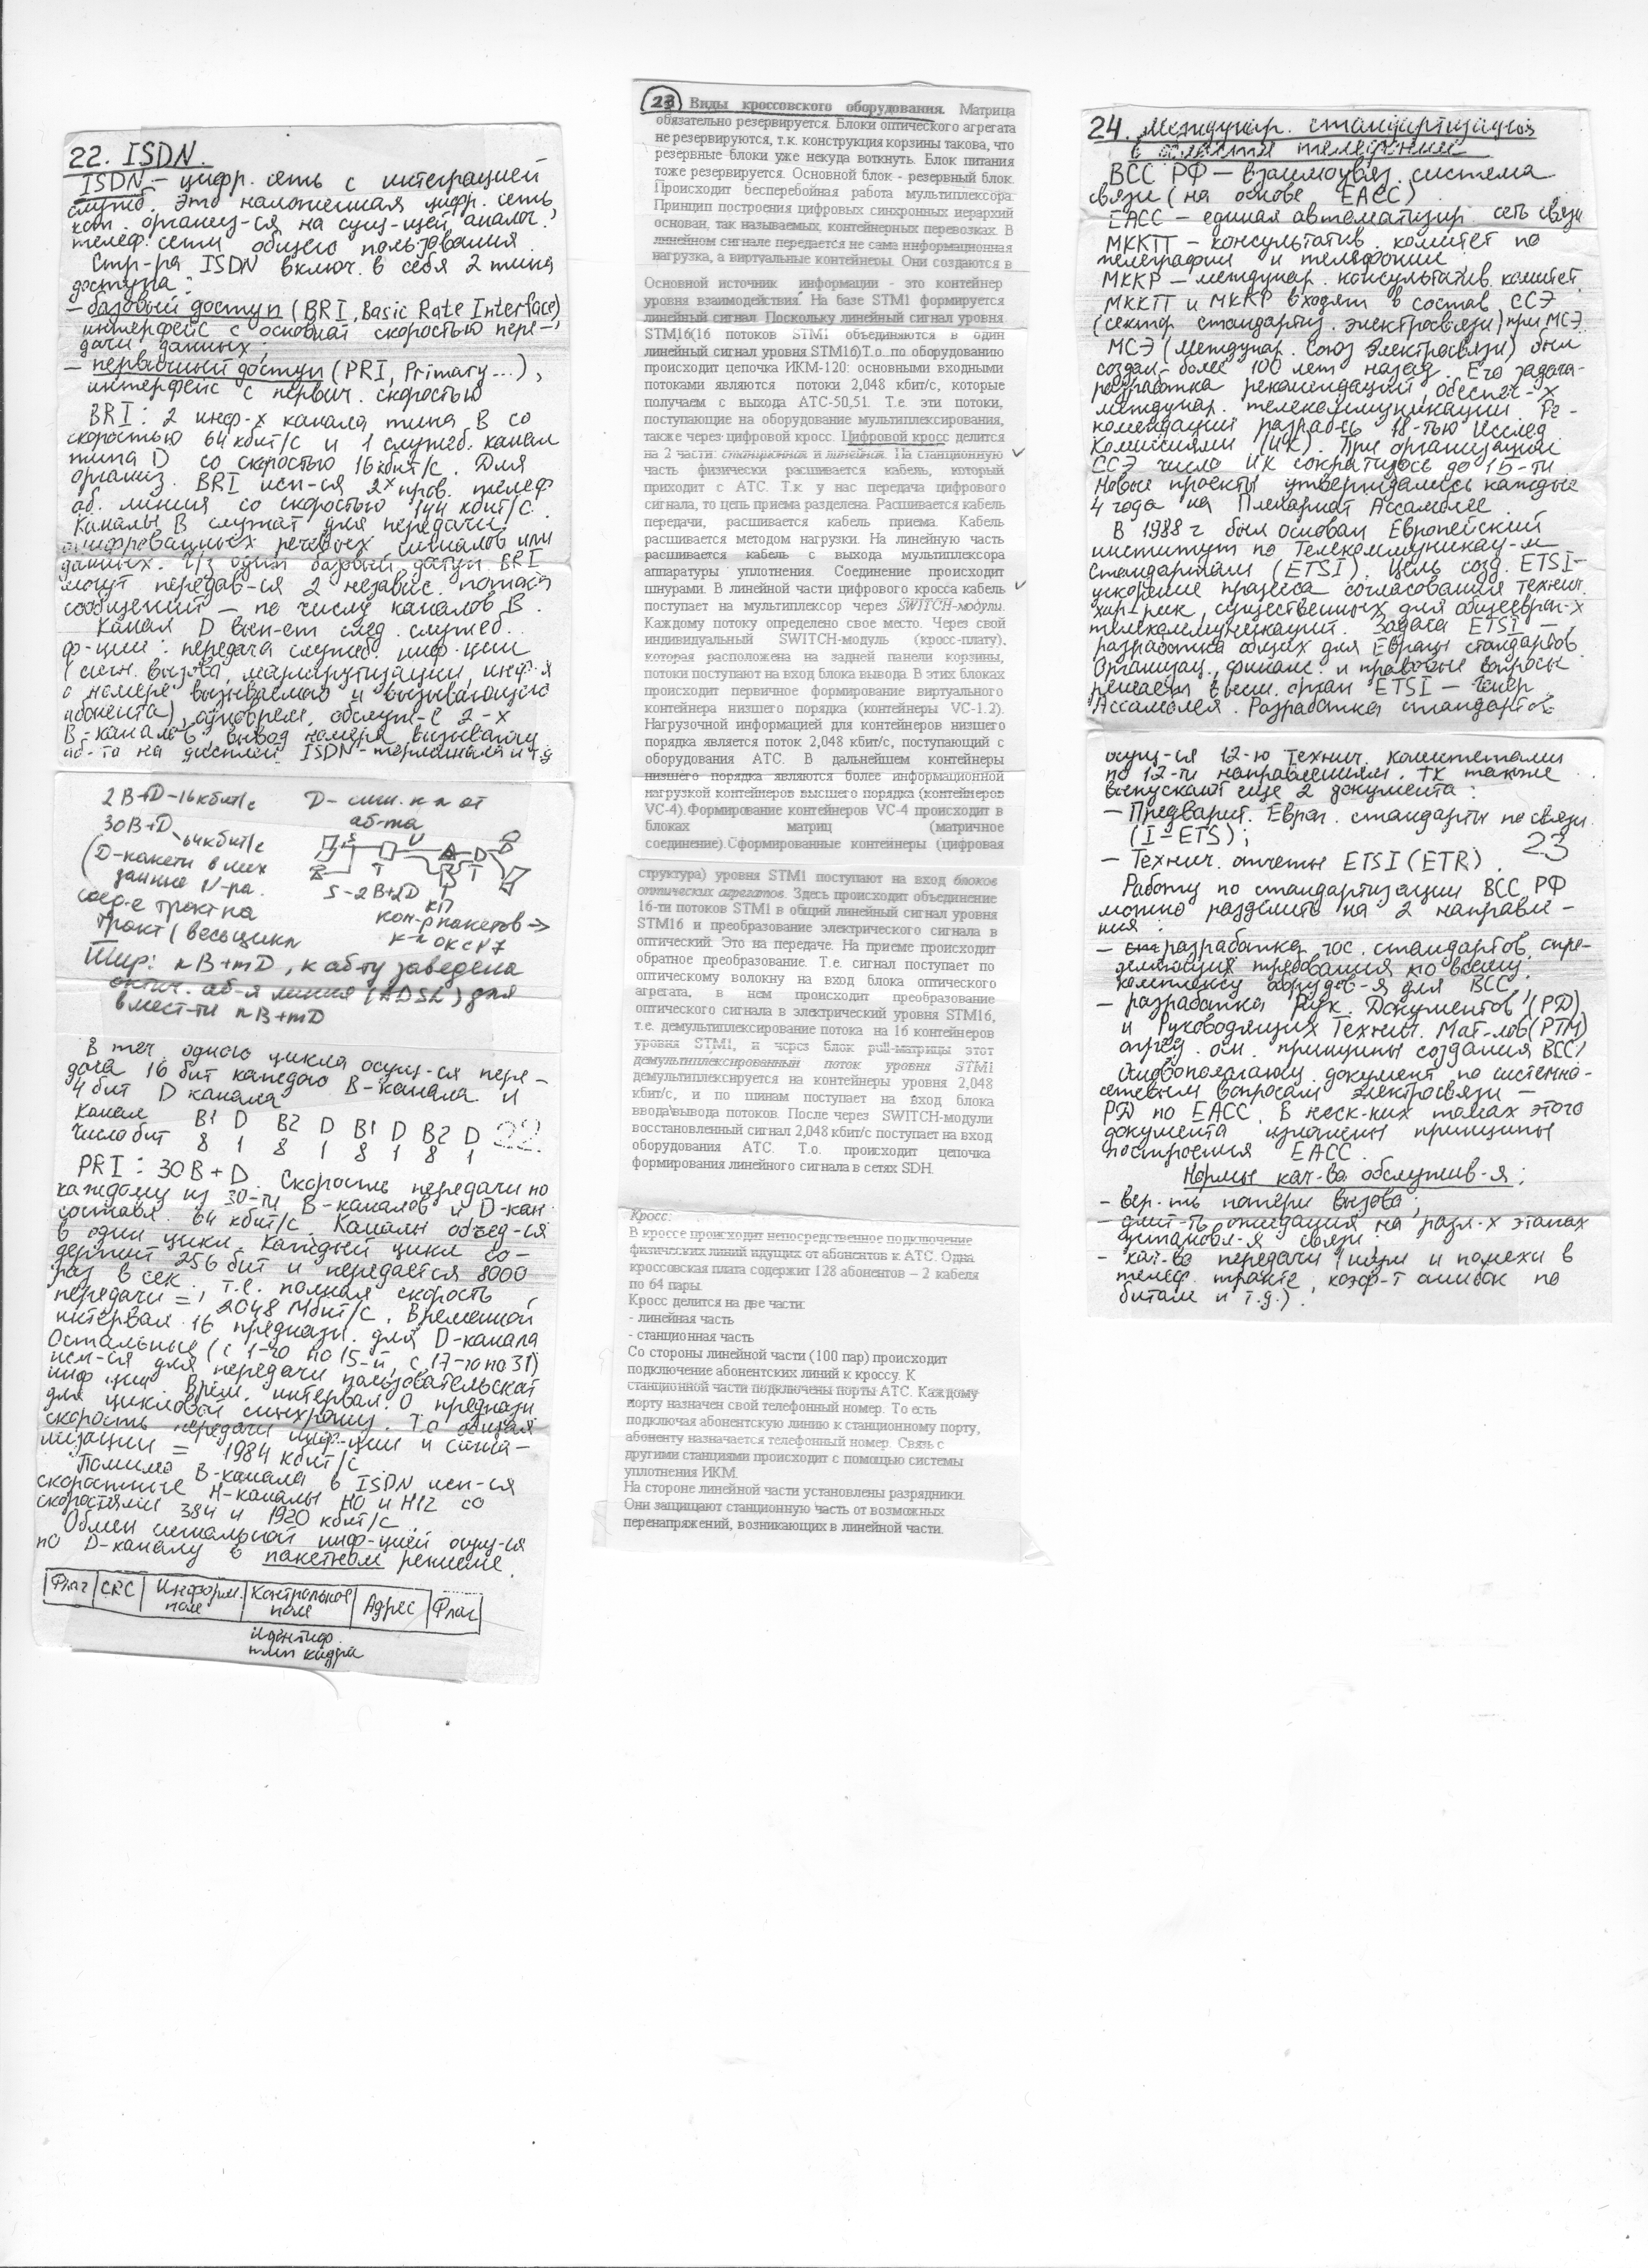 22. ISDN.
ISDN – цифр. сеть с интеграцией
служб. Это наложенная цифр. сеть,
кот. организ-ся на сущ-щей аналог.
телеф. сети общего пользования.
Стр-ра ISDN включ. в себя 2 типа
доступа:
– базовый доступ (BRI, Basic Rate Interface),
интерфейс с основной скоростью пере-
дачи данных;
– первичный доступ (PRI, Primary...),
интерфейс с первич. скоростью
BRI: 2 инф-х канала типа B со
скоростью 64 кбит/с и 1 служеб. канал
типа D со скоростью 16 кбит/с. Для
организ. BRI исп-ся 2х пров. телеф
аб. линия со скоростью 144 кбит/с.
Каналы B служат для передачи
оцифрованных речевых сигналов или
данных. Ч/з один базовый доступ BRI
могут передав-ся 2 независ. потока
сообщений – по числу каналов B.
Канал D вып-ет след. служеб.
ф-ции: передача служеб. инф-ции
(сигн. вызова, маршрутизации, инф-я
о номере вызываемого и вызывающего
абонента), одноврем. обслуж-е 2-х
B-каналов, вывод номера вызывающ
аб-та на дисплей ISDN-терминала и т.д
2B+D-16кбит/с D- сигн. к-л от
аб-та
30B+D-64кбит/с
(D-пакеты в них
данные
соед-е тракт на
тракт (весь цикл
S-2B+2D
кП
кон-р пакетов →
к-л ОКС №7
Шир: nB+mD, к аб-ту заведена
оптич. аб-я линия (ADSL) для
вмест-ти nB+mD
В теч. одного цикла осущ-ся пере-
дача 16 бит каждого B-канала и
4 бит D канала
Канал B1 D B2 D B1 D B2 D
Число бит 8 1 8 1 8 1 8 1
22.
PRI: 30B+D. Скорость передачи по
каждому из 30-ти B-каналов и D-кан
составл. 64 кбит/с. Каналы объед-ся
в один цикл. Каждый цикл со-
держит 256 бит и передается 8000
раз в сек., т.е. полная скорость
передачи = 2048 Мбит/с. Временной
интервал 16 предназн. для D-канала
Остальные (с 1-го по 15-й, с 17-го по 31)
исп-ся для передачи пользовательской
инф-ции. Врем. интервал 0 предназн
для цикловой синхрониз. Т.о общая
скорость передачи инф-ции и сигна-
лизации = 1984 кбит/с
Помимо B-канала в ISDN исп-ся
скоростные H-каналы H0 и H12 со
скоростями 384 и 1920 кбит/с.
Обмен сигнальной инф-цией осущ-ся
по D-каналу в пакетном режиме.
Флаг CRC Информ. поле Контрольное поле Адрес Флаг
идентиф.
тип кадра
23 Виды кроссовского оборудования. Матрица
обязательно резервируется. Блоки оптического агрегата
не резервируются, т.к. конструкция корзины такова, что
резервные блоки уже некуда воткнуть. Блок питания
тоже резервируется. Основной блок - резервный блок.
Происходит бесперебойная работа мультиплексора.
Принцип построения цифровых синхронных иерархий
основан, так называемых, контейнерных перевозках. В
линейном сигнале передается не сама информационная
нагрузка, а виртуальные контейнеры. Они создаются в
Основной источник информации - это контейнер
уровня взаимодействия. На базе STM1 формируется
линейный сигнал. Поскольку линейный сигнал уровня
STM16(16 потоков STM1 объединяются в один
линейный сигнал уровня STM16).Т.о. по оборудованию
происходит цепочка ИКМ-120: основными входными
потоками являются потоки 2,048 кбит/с, которые
получаем с выхода АТС-50,51. Т.е. эти потоки,
поступающие на оборудование мультиплексирования,
также через цифровой кросс. Цифровой кросс делится
на 2 части: станционная и линейная. На станционную
часть физически расшивается кабель, который
приходит с АТС. Т.к у нас передача цифрового
сигнала, то цепь приема разделена. Расшивается кабель
передачи, расшивается кабель приема. Кабель
расшивается методом нагрузки. На линейную часть
расшивается кабель с выхода мультиплексора
аппаратуры уплотнения. Соединение происходит
шнурами. В линейной части цифрового кросса кабель
поступает на мультиплексор через SWITCH-модули.
Каждому потоку определено свое место. Через свой
индивидуальный SWITCH-модуль (кросс-плату),
которая расположена на задней панели корзины,
потоки поступают на вход блока вывода. В этих блоках
происходит первичное формирование виртуального
контейнера низшего порядка (контейнеры VC-1.2).
Нагрузочной информацией для контейнеров низшего
порядка является поток 2,048 кбит/с, поступающий с
оборудования АТС. В дальнейшем контейнеры
низшего порядка являются более информационной
нагрузкой контейнеров высшего порядка (контейнеров
VC-4).Формирование контейнеров VC-4 происходит в
блоках матриц (матричное
соединение).Сформированные контейнеры (цифровая
структура) уровня STM1 поступают на вход блоков
оптических агрегатов. Здесь происходит объединение
16-ти потоков STM1 в общий линейный сигнал уровня
STM16 и преобразование электрического сигнала в
оптический. Это на передаче. На приеме происходит
обратное преобразование. Т.е. сигнал поступает по
оптическому волокну на вход блока оптического
агрегата, в нем происходит преобразование
оптического сигнала в электрический уровня STM16,
т.е. демультиплексирование потока на 16 контейнеров
уровня STM1, и через блок pull-матрицы этот
демультиплексированный поток уровня STM1
демультиплексируется на контейнеры уровня 2,048
кбит/с, и по шинам поступает на вход блока
ввода\вывода потоков. После через SWITCH-модули
восстановленный сигнал 2,048 кбит/с поступает на вход
оборудования АТС. Т.о. происходит цепочка
формирования линейного сигнала в сетях SDH.
Кросс:
В кроссе происходит непосредственное подключение
физических линий идущих от абонентов к АТС. Одна
кроссовская плата содержит 128 абонентов – 2 кабеля
по 64 пары.
Кросс делится на две части:
- линейная часть
- станционная часть
Со стороны линейной части (100 пар) происходит
подключение абонентских линий к кроссу. К
станционной части подключены порты АТС. Каждому
порту назначен свой телефонный номер. То есть
подключая абонентскую линию к станционному порту,
абоненту назначается телефонный номер. Связь с
другими станциями происходит с помощью системы
уплотнения ИКМ.
На стороне линейной части установлены разрядники.
Они защищают станционную часть от возможных
перенапряжений, возникающих в линейной части.
24. Междунар. стандартизация
в области телефонии
ВСС РФ – взаимоувяз. система
связи (на основе ЕАСС)
ЕАСС – единая автоматизир. сеть связи
МККТТ – консультатив. комитет по
телеграфии и телефонии
МККР – междунар. консультатив. комитет.
МККТТ и МККР входят в состав ССЭ
(сектор стандартиз. электросвязи) при МСЭ.
МСЭ (Междунар. Союз Электросвязи) был
создан более 100 лет назад. Его задача-
разработка рекомендаций, обеспеч-х
междунар. телекоммуникации. Ре-
комендации разраб-сь 18-тью Исслед.
Комиссиями (ИК). При организации
ССЭ число ИК сократилось до 15-ти.
Новые проекты утверждались каждые
4 года на Пленарной Ассамблее.
В 1988 г был основан Европейский
институт по Телекоммуникац-м
стандартам (ETSI). Цель созд. ETSI-
ускорение процесса согласования технич.
хар-рик, существенных для общеевроп-х
телекоммуникаций. Задача ETSI –
разработка общих для Европы стандартов.
Организац., финанс. и правовые вопросы
решает высш. орган ETSI – Генер.
Ассамблея. Разработка стандартов
осущ-ся 12-ю технич. комитетами
по 12-ти направлениям. ТК также
выпускают еще 2 документа:
– Предварит. Европ. стандарты по связи
(I-ETS);
– Технич. отчеты ETSI (ETR).
23
Работу по стандартизации ВСС РФ
можно разделить на 2 направле-
ния:
– разработка гос. стандартов, опре-
деляющих требования ко всему
комплексу оборудов-я для ВСС;
– разработка Рук. Документов (РД)
и Руководящих Технич. Мат-лов (РТМ)
опред. осн. принципы создания ВСС.
Основополагающ. документ по системно-
сетевым вопросам электросвязи –
РД по ЕАСС. В неск-ких томах этого
документа изложены принципы
построения ЕАСС.
Нормы кач-ва обслужив-я:
– вер-ть потери вызова;
– длит-ть ожидания на разл-х этапах
установл-я связи;
– кач-во передачи (шум и помехи в
телеф. тракте, коэф-т ошибок по
битам и т.д.).